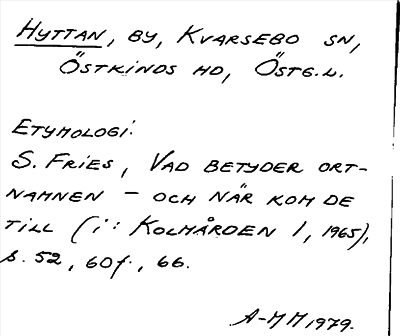 HYTTAN, BY, KVARSEBO SN,
ÖSTKINDS HD, ÖSTG.L.
ETYMOLOGI:
S. FRIES, VAD BETYDER ORT-
NAMNEN – OCH NÄR KOM DE
TILL (i: KOLMÅRDEN 1, 1965),
s. 52, 60f., 66.
A-MM 1979.